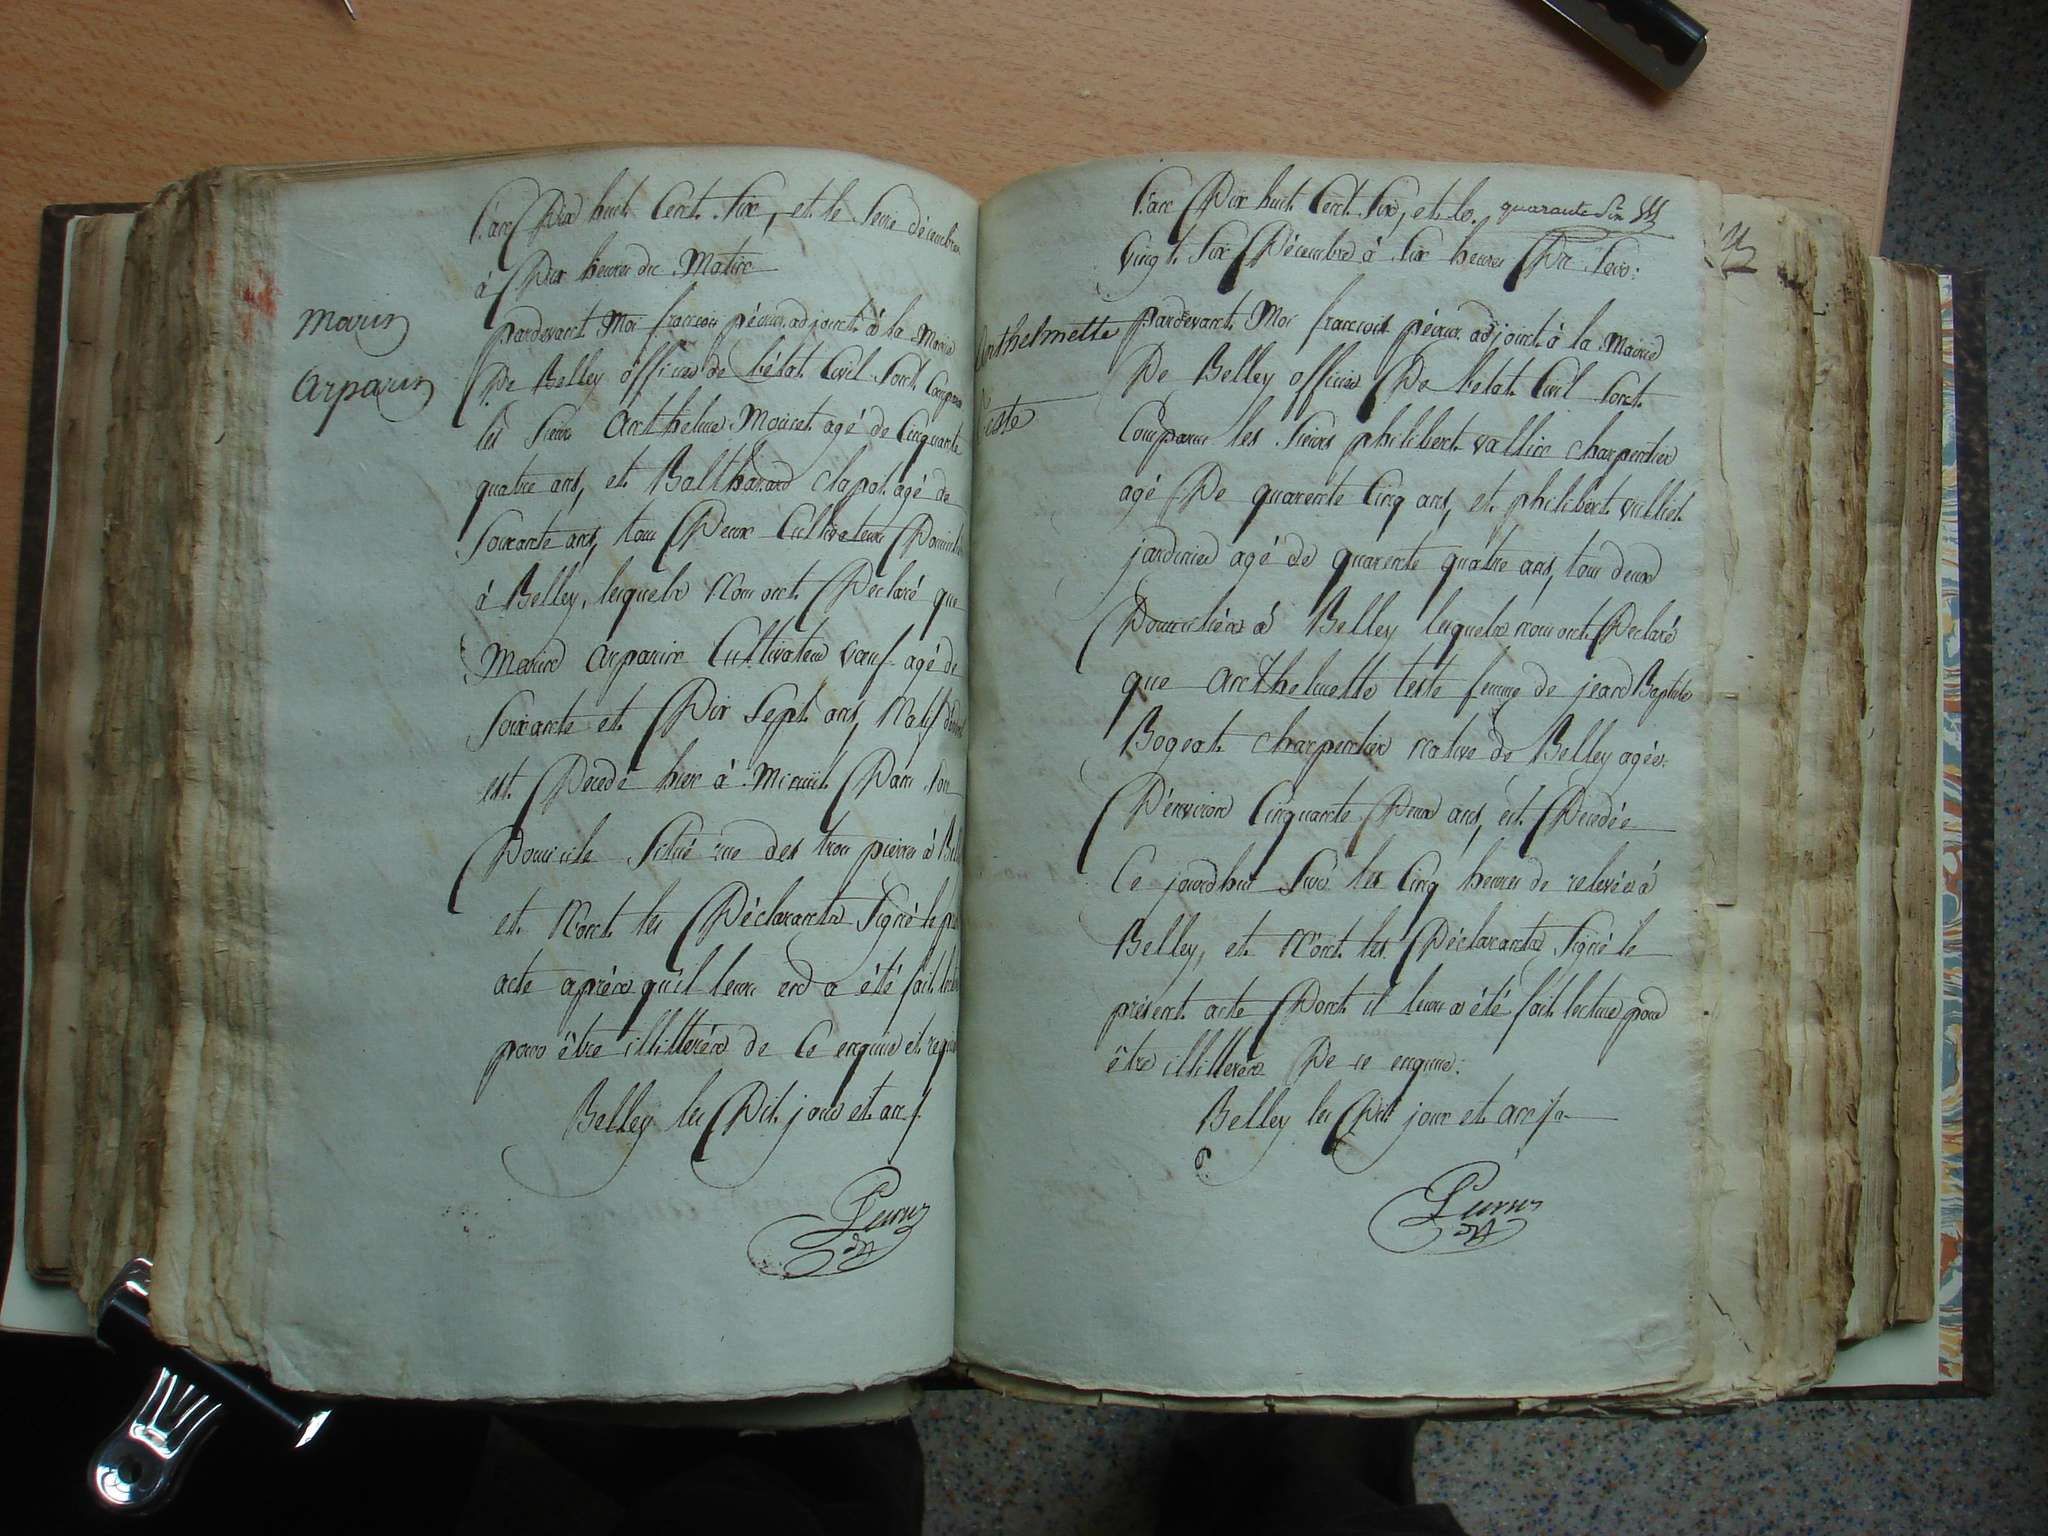 L'an Dix huit Cent Six, et le Seize décembre
à Dix heures du Matin
Marin
Arparin
pardevant Moi françois pécusadjoint à la Mairie
De Belley officier de L'état Civil Sont Comparu
les Sieurs Anthelme Mouret agé de Cinquante
quatre ans, et Balthazard clapot agé de
Soixante ans, tous Deux Cultivateurs Domiciliés
à Belley, lesquels Nous ont Déclaré que
Marin Arparin Cultivateur veuf agé de
Soixante et Dix Sept ans, Natif
est Décédé hier à Minuit Dans Son
Domicile Situé rue des trois pierres à
et N'ont les Déclarants Signé le
acte après qu'il leurs en a été fait
pour être illittérés de Ce enquis et requis
Belley les Dit jour et an
quarante Six
L'an Dix huit Cent Six, et le
vingt Six Décembre à Six heures Du Soir:
Anthelmette
teste
pardevant Moi françois adjoint à la Mairie
De Belley officier De L'état Civil Sont
Comparu les Sieurs philibert vallin charpentier
agé De quarente Cinq ans, et philibert vulliet
jardinier agé de quarente quatre ans, tous deux
Domiciliés à Belley lesquels nous ont Déclaré
que Anthelmette teste femme de jean Baptiste
Bogeat charpentier native de Belley agée
D'environ Cinquante Deux ans, est Décédée
Ce jourdhui Sur les Cinq heures de relevée à
Belley, et N'ont les Déclarants Signé le
présent acte Dont il leurs a été fait lecture pour
être illittérés De ce enquis:
Belley les Dit jour et an